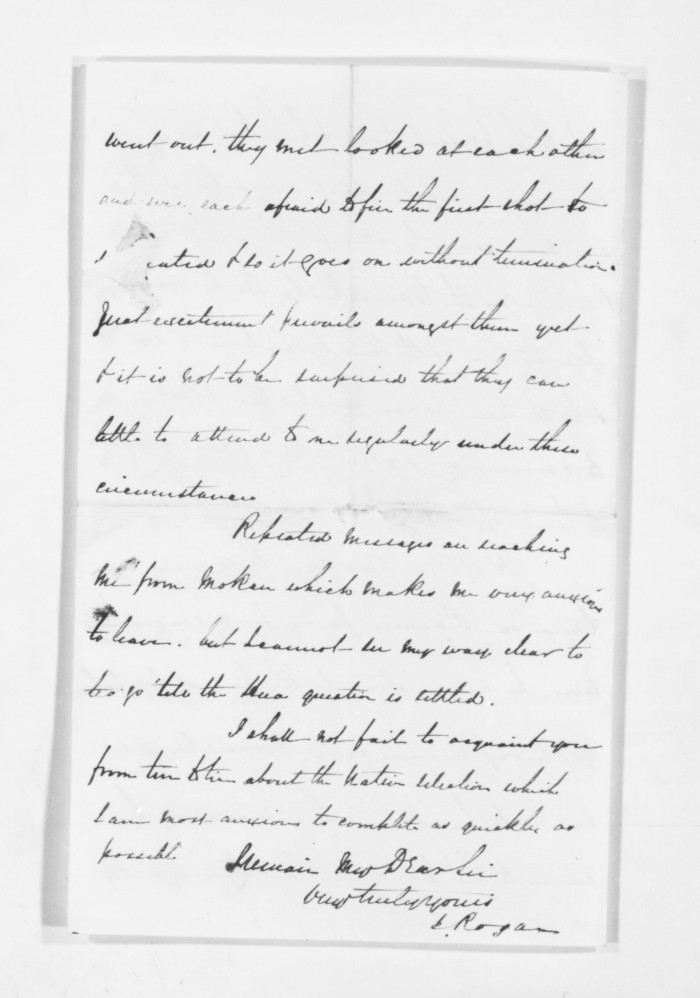 went out. they met looked at each other
and were each afraid to fire the first shot so
& so it goes on without termination.
Great excitement prevails amongst them yet
& it is not to be surprised that they can
little to attend to me regularly under these
circumstances
Repeated messages are reaching
me from Mokau which makes me very anxious
to leave. but I cannot see my way clear to
to go 'till the question is settled.
I shall not fail to acquaint you
from time to time about the Native election which
I am most anxious to complete as quickly as
possible
I remain My Dear Sir
Very truly yours
Rogan